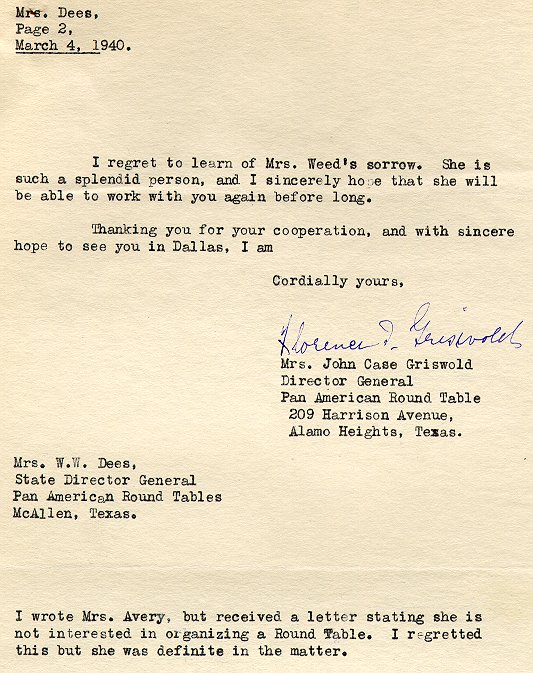 Mrs. Dees,
Page 2,
March 4, 1940.
I regret to learn of Mrs. Weed's sorrow. She is
such a splendid person, and I sincerely hope that she will
be able to work with you again before long.
Thanking you for your cooperation, and with sincere
hope to see you in Dallas, I am
Cordially yours,
Florence T. Griswold
Mrs. John Case Griswold
Director General
Pan American Round Table
209 Harrison Avenue,
Alamo Heights, Texas.
Mrs. W.W. Dees,
State Director General
Pan American Round Tables
McAllen, Texas.
I wrote Mrs. Avery, but received a letter stating she is
not interested in organizing a Round Table. I regretted
this but she was definite in the matter.